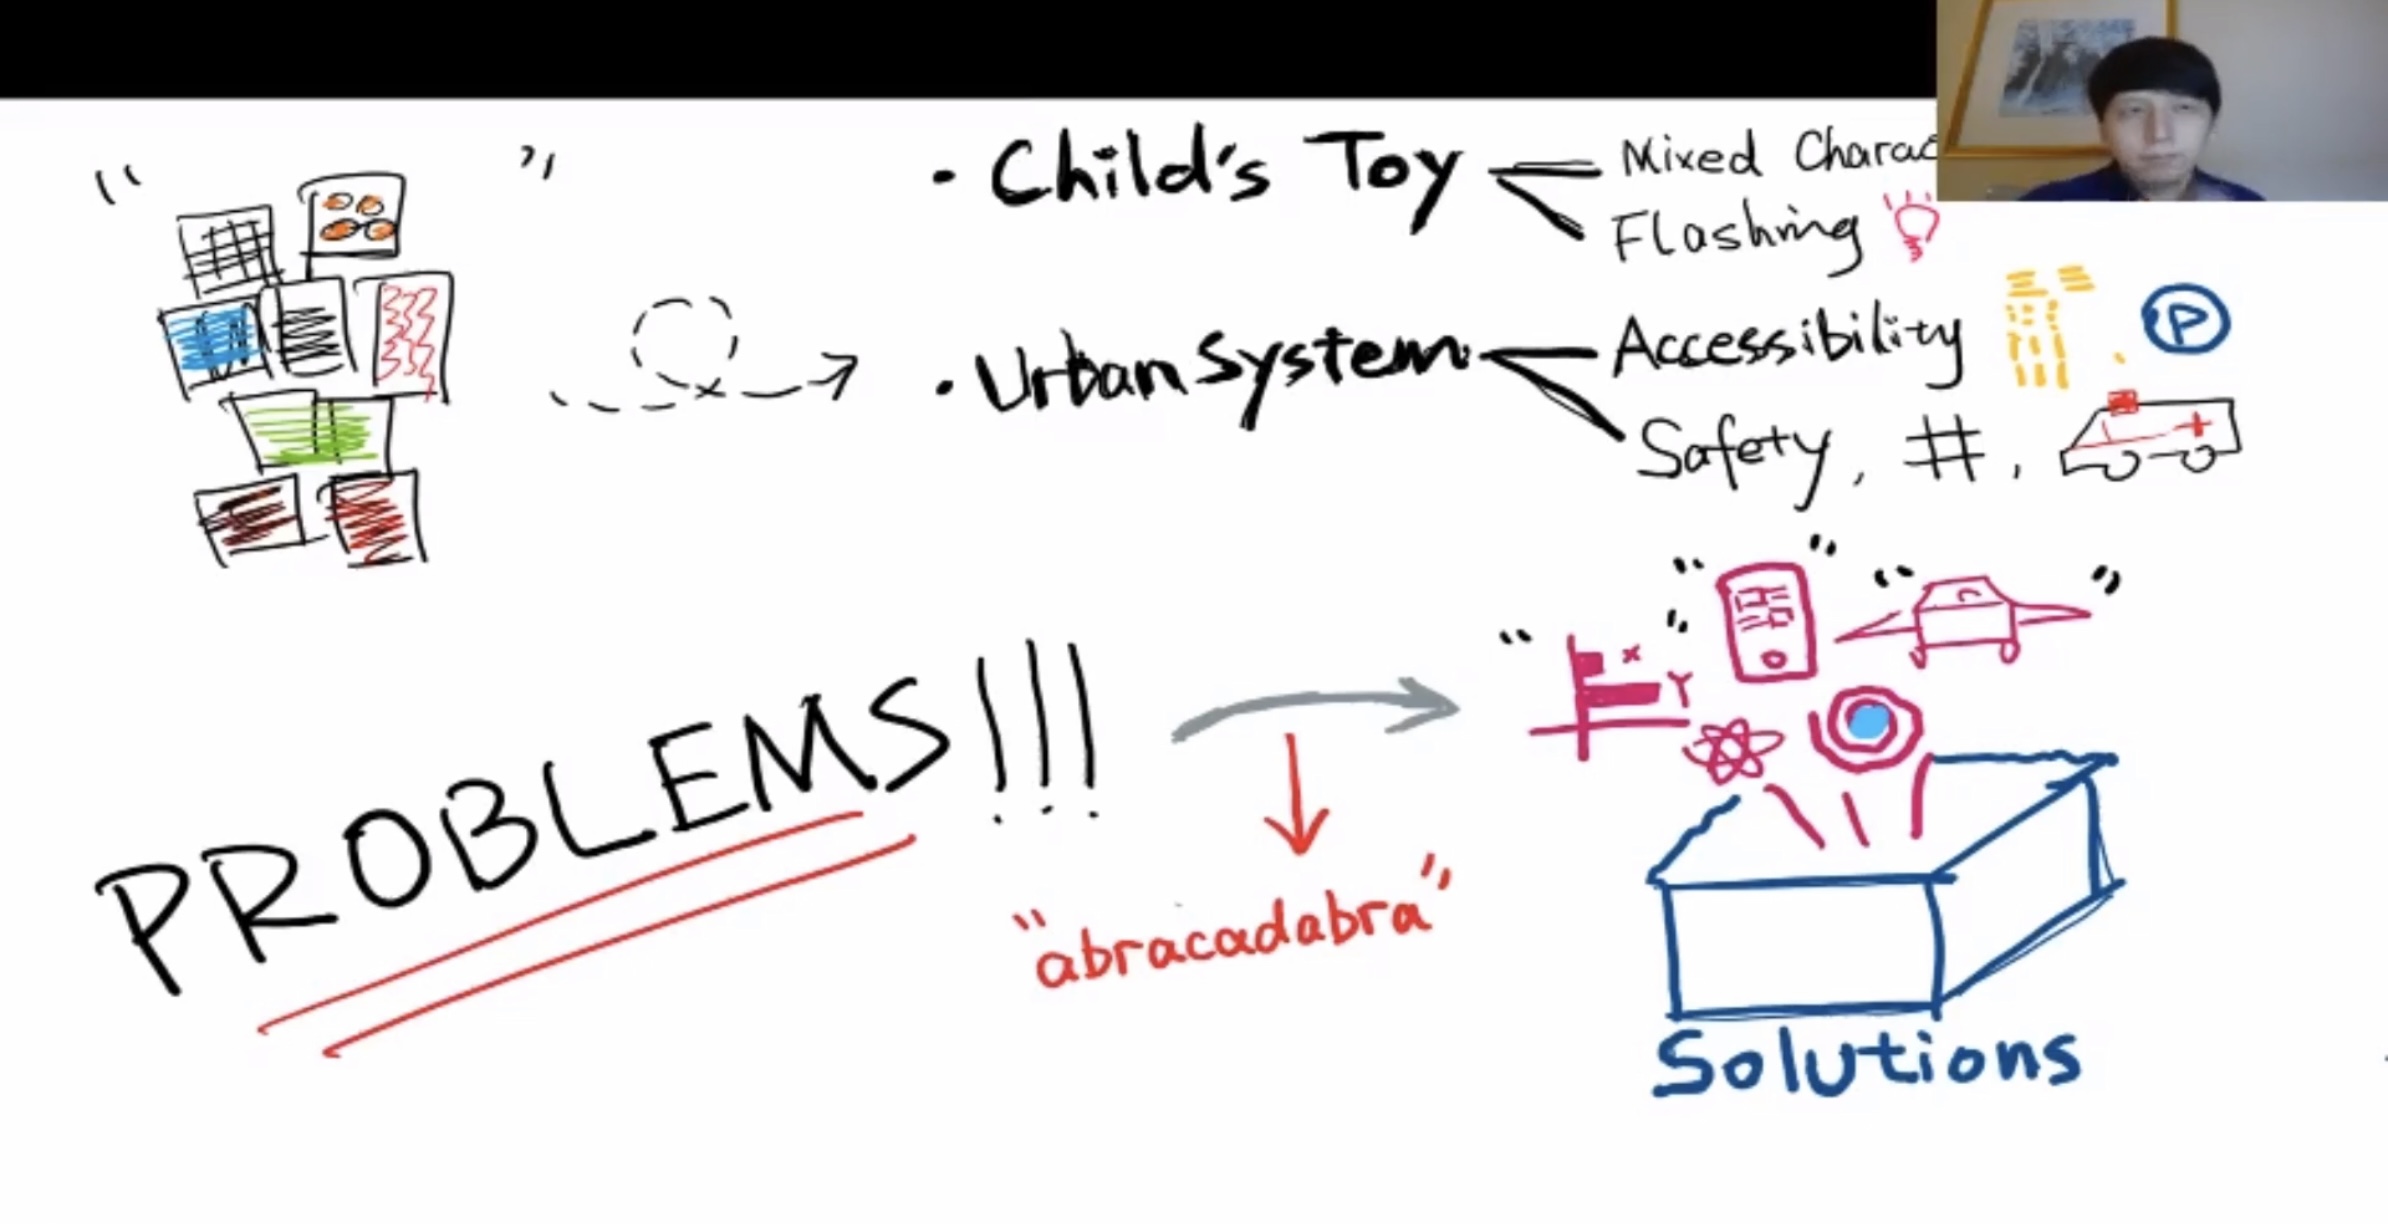 • Child's Toy
Mixed Charac
Flashing
• Urban System
Accessibility
P
Safety, #,
PROBLEMS!!!
"abracadabra"
x
Y
Solutions